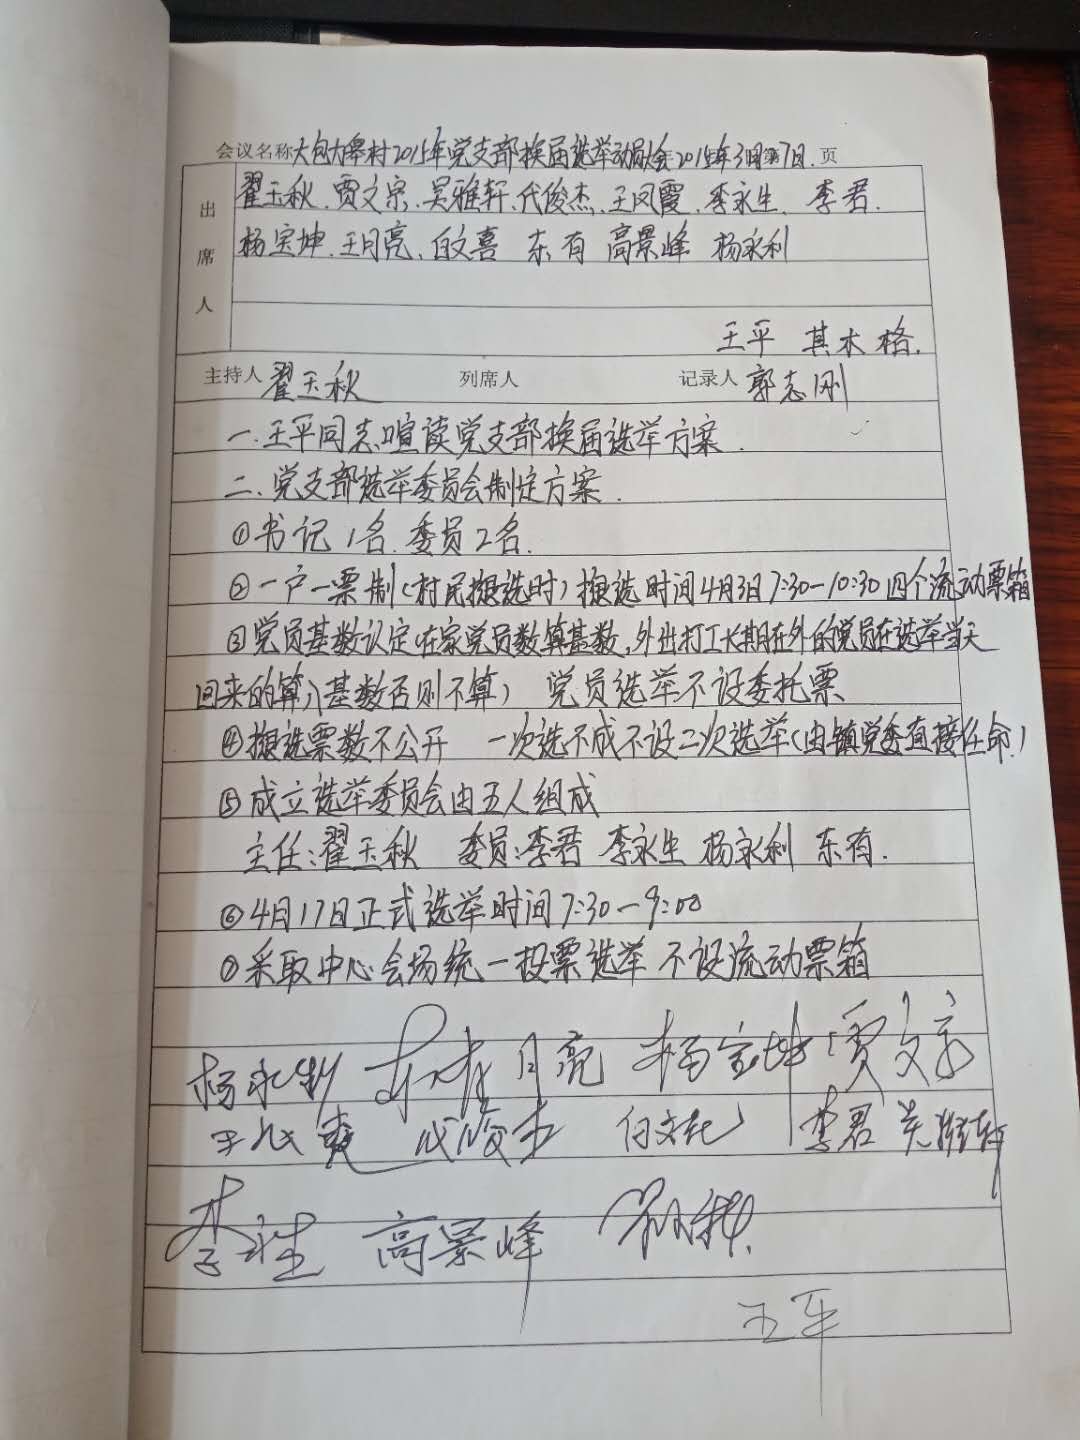 会议名称大包大皋村2015年党支部换届选举动员会2015年3月第7日.页
出席人
翟玉秋.贾文宗.吴雅轩.代俊杰.王凤霞.李永生.李君.
杨宝坤.王月亮.白文喜 东有 高景峰 杨永利
王平 其木格.
主持人 翟玉秋 列席人 记录人 郭志刚
一.王平同志喧读党支部换届选举方案.
二.党支部选举委员会制定方案.
①书记1名.委员2名.
②一户一票制(村民拟选时)拟选时间4月3日7:30—10:30四个流动票箱
③党员基数认定(在家党员数算基数,外出打工长期在外的党员在选举当天
回来的算入基数否则不算) 党员选举不设委托票
④拟选票数不公开 一次选不成不设二次选举(由镇党委直接任命)
⑤成立选举委员会由五人组成
主任:翟玉秋 委员:李君 李永生 杨永利 东有.
⑥4月17日正式选举时间7:30—9:00
⑦采取中心会场统一投票选举 不设流动票箱
杨永利 东有 月亮 杨宝坤 贾文宗
王凤霞 代俊杰 白文喜 李君 吴雅轩
李永生 高景峰
王平